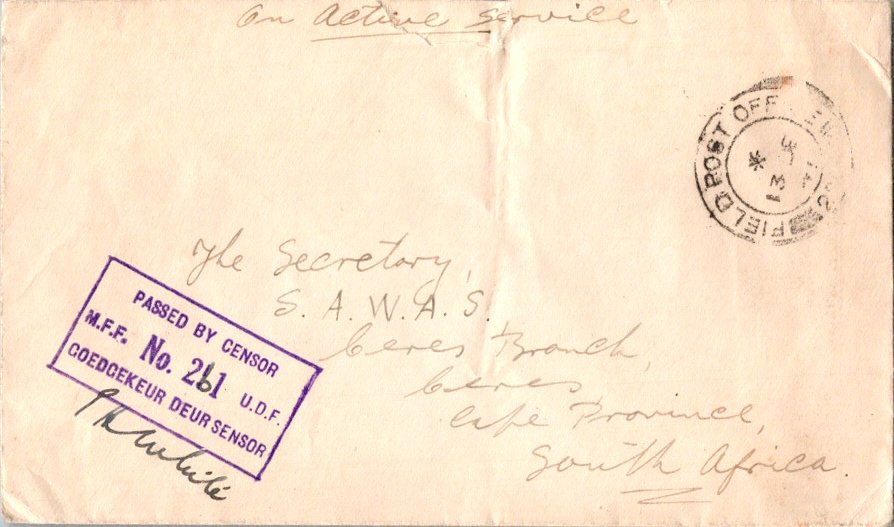 On Active Service
FIELD POST OFFICE
13
The Secretary,
S. A. W. A. S.
Ceres Branch,
Ceres,
Cape Province,
South Africa.
PASSED BY CENSOR
M.F.F. No. 261 U.D.F.
GOEDGEKEUR DEUR SENSOR